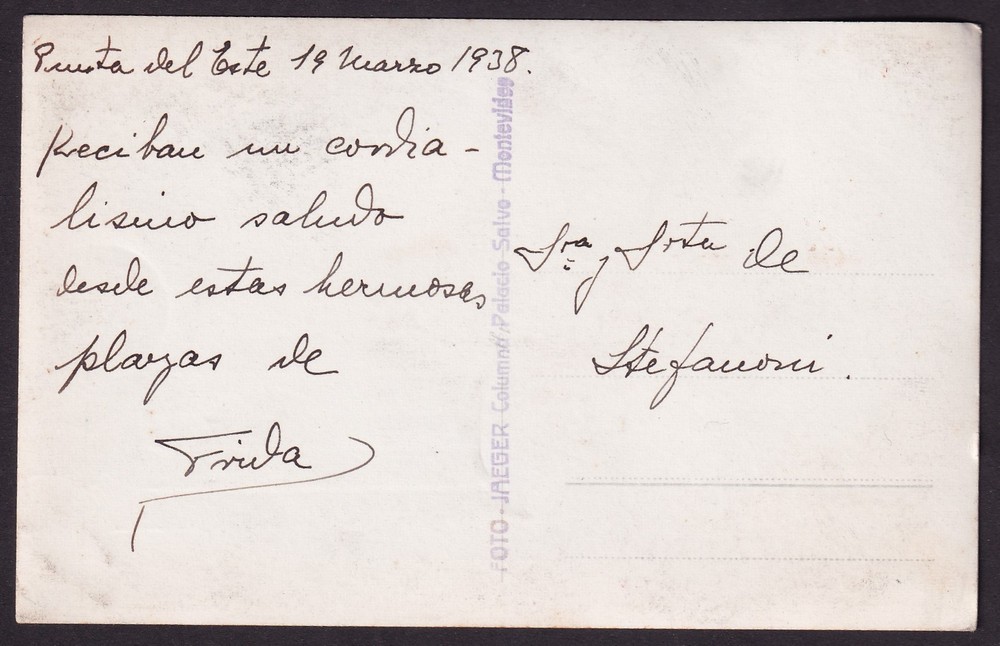 Punta del Este 19 Marzo 1938.
Reciban un cordia-
lisimo saludo
desde estas hermosas
playas de
Frida
Sra y Srta de
Stefanoni.
FOTO - JAEGER Columna/Palacio-Salvo - Montevideo